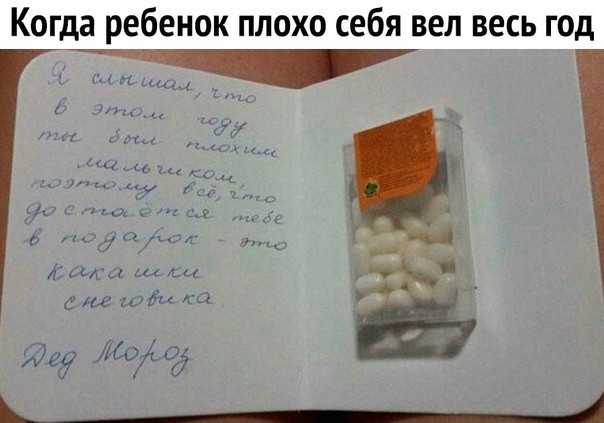 Когда ребенок плохо себя вел весь год
Я слышал, что
в этом году
ты был плохим
мальчиком,
поэтому всё, что
достаётся тебе
в подарок - это
какашки
снеговика.
Дед Мороз